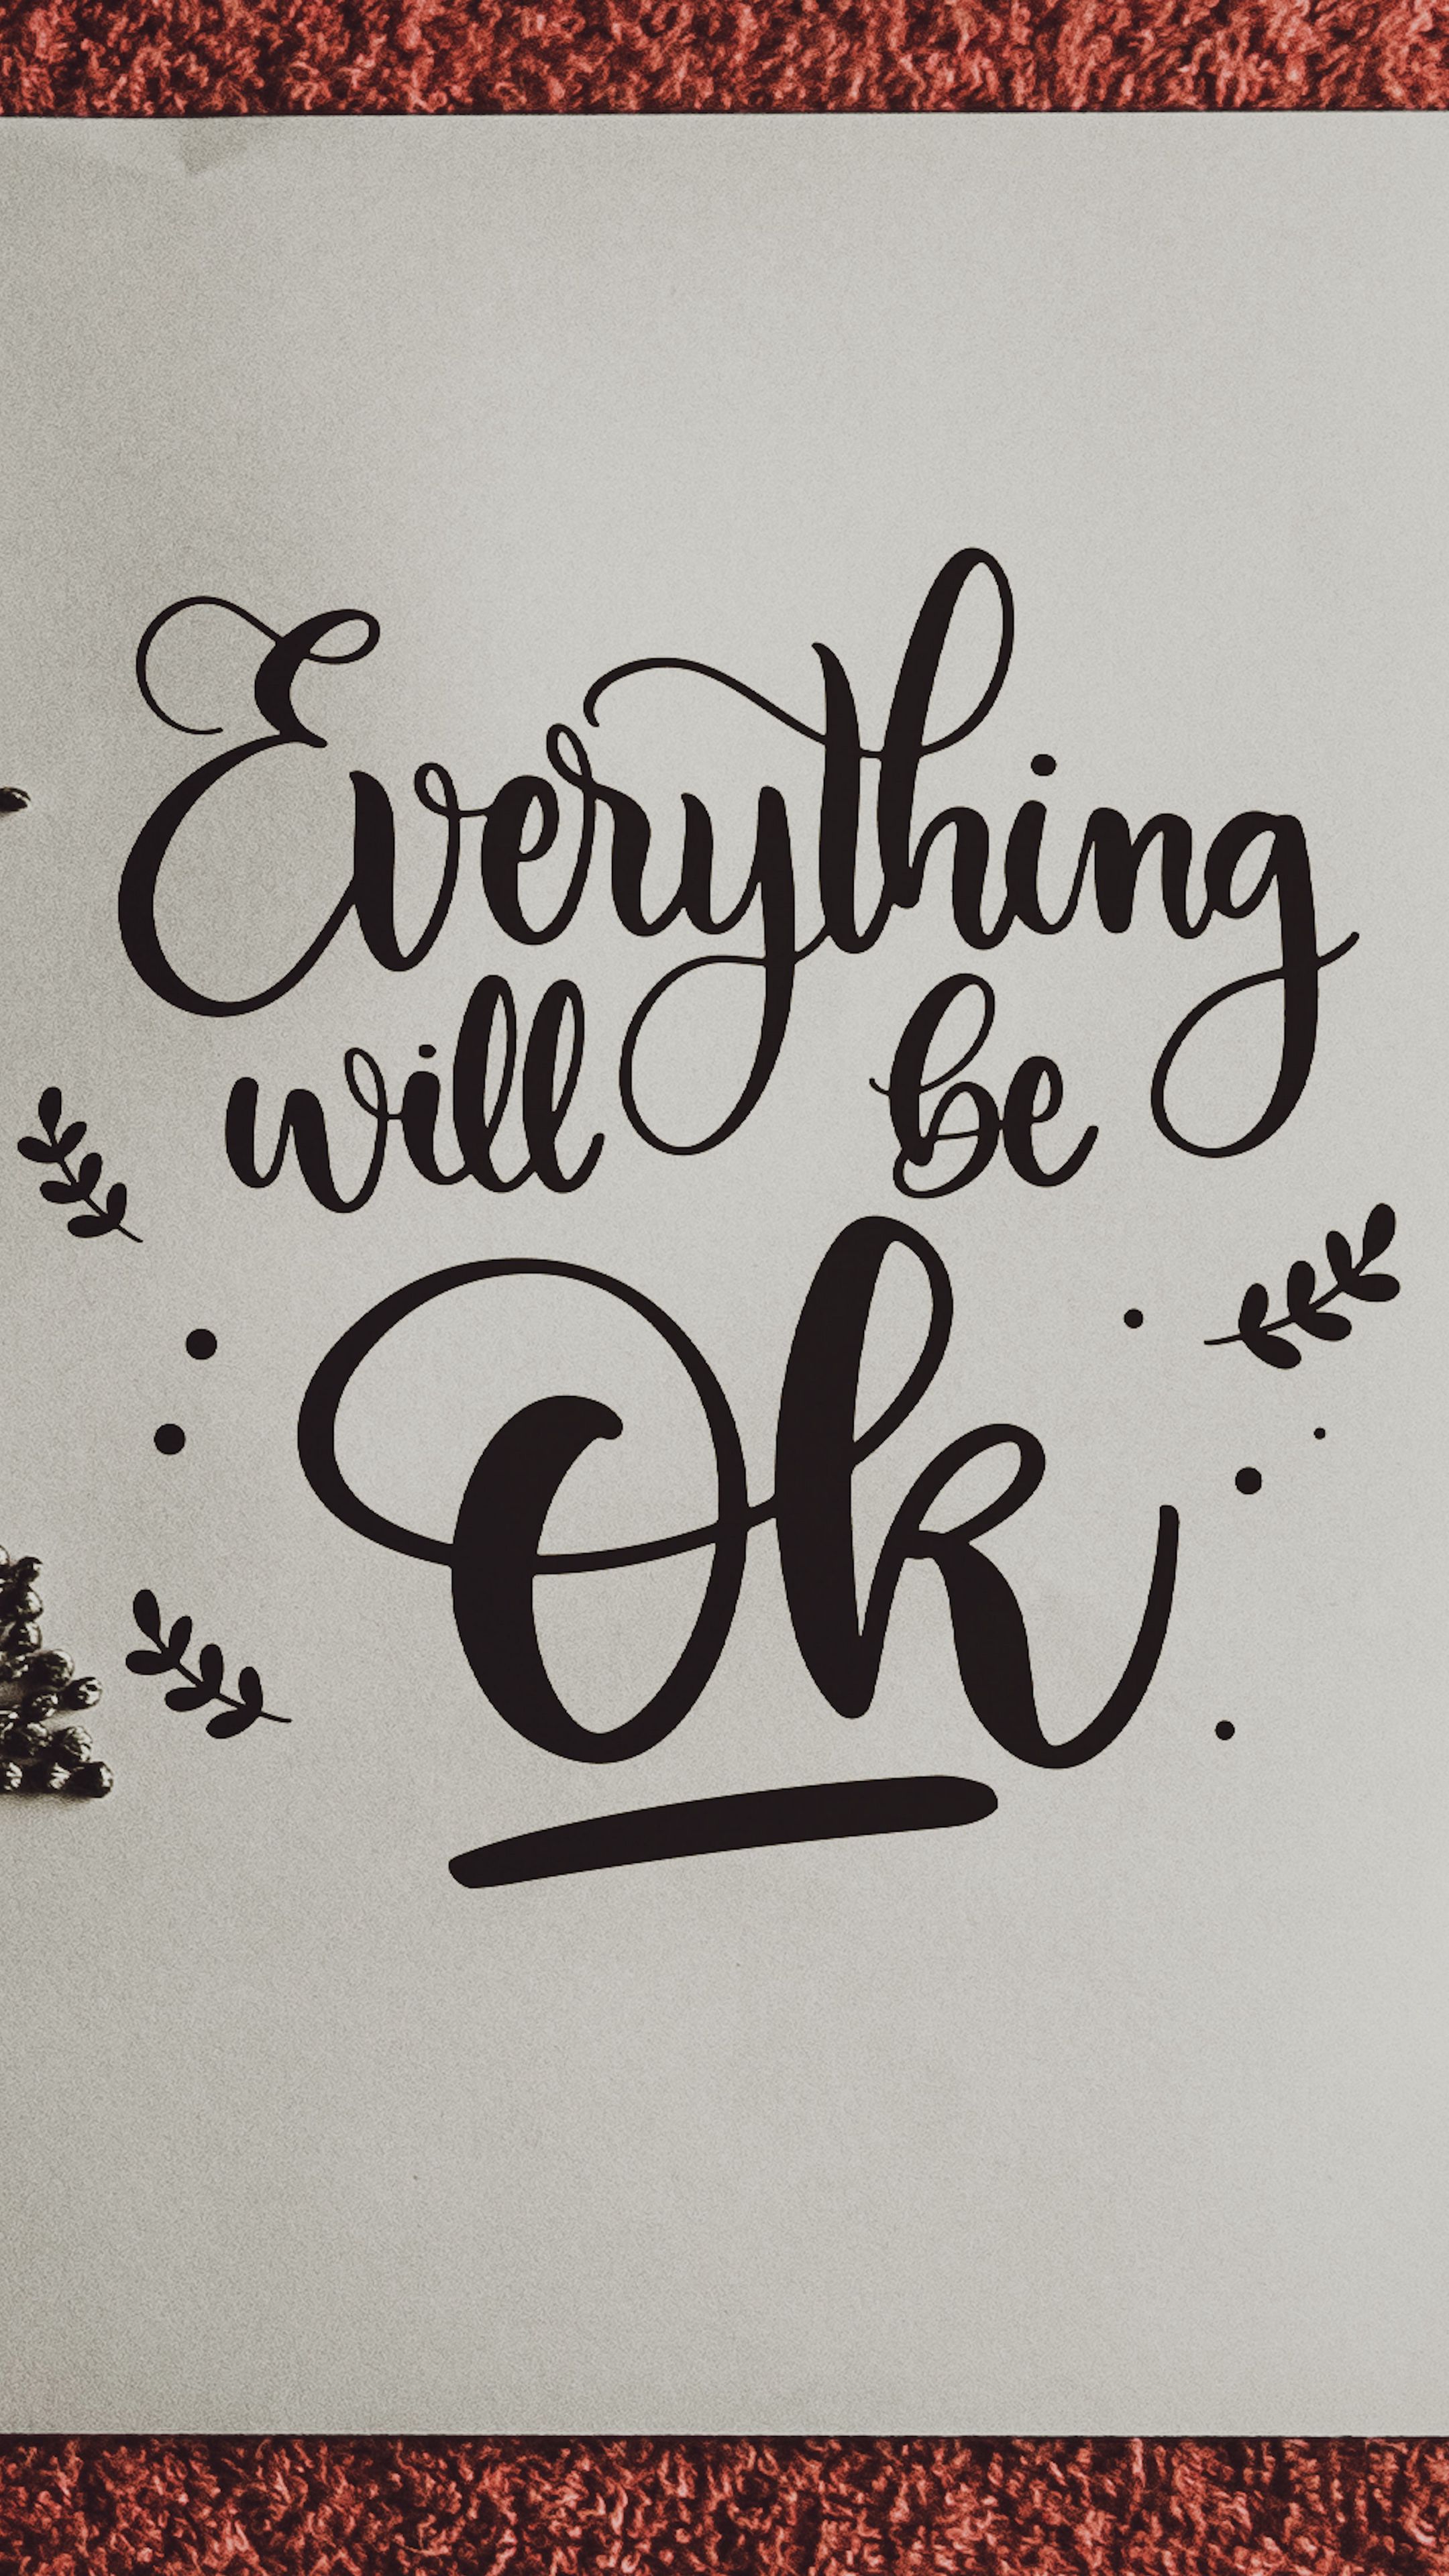 Everything
will be
Ok